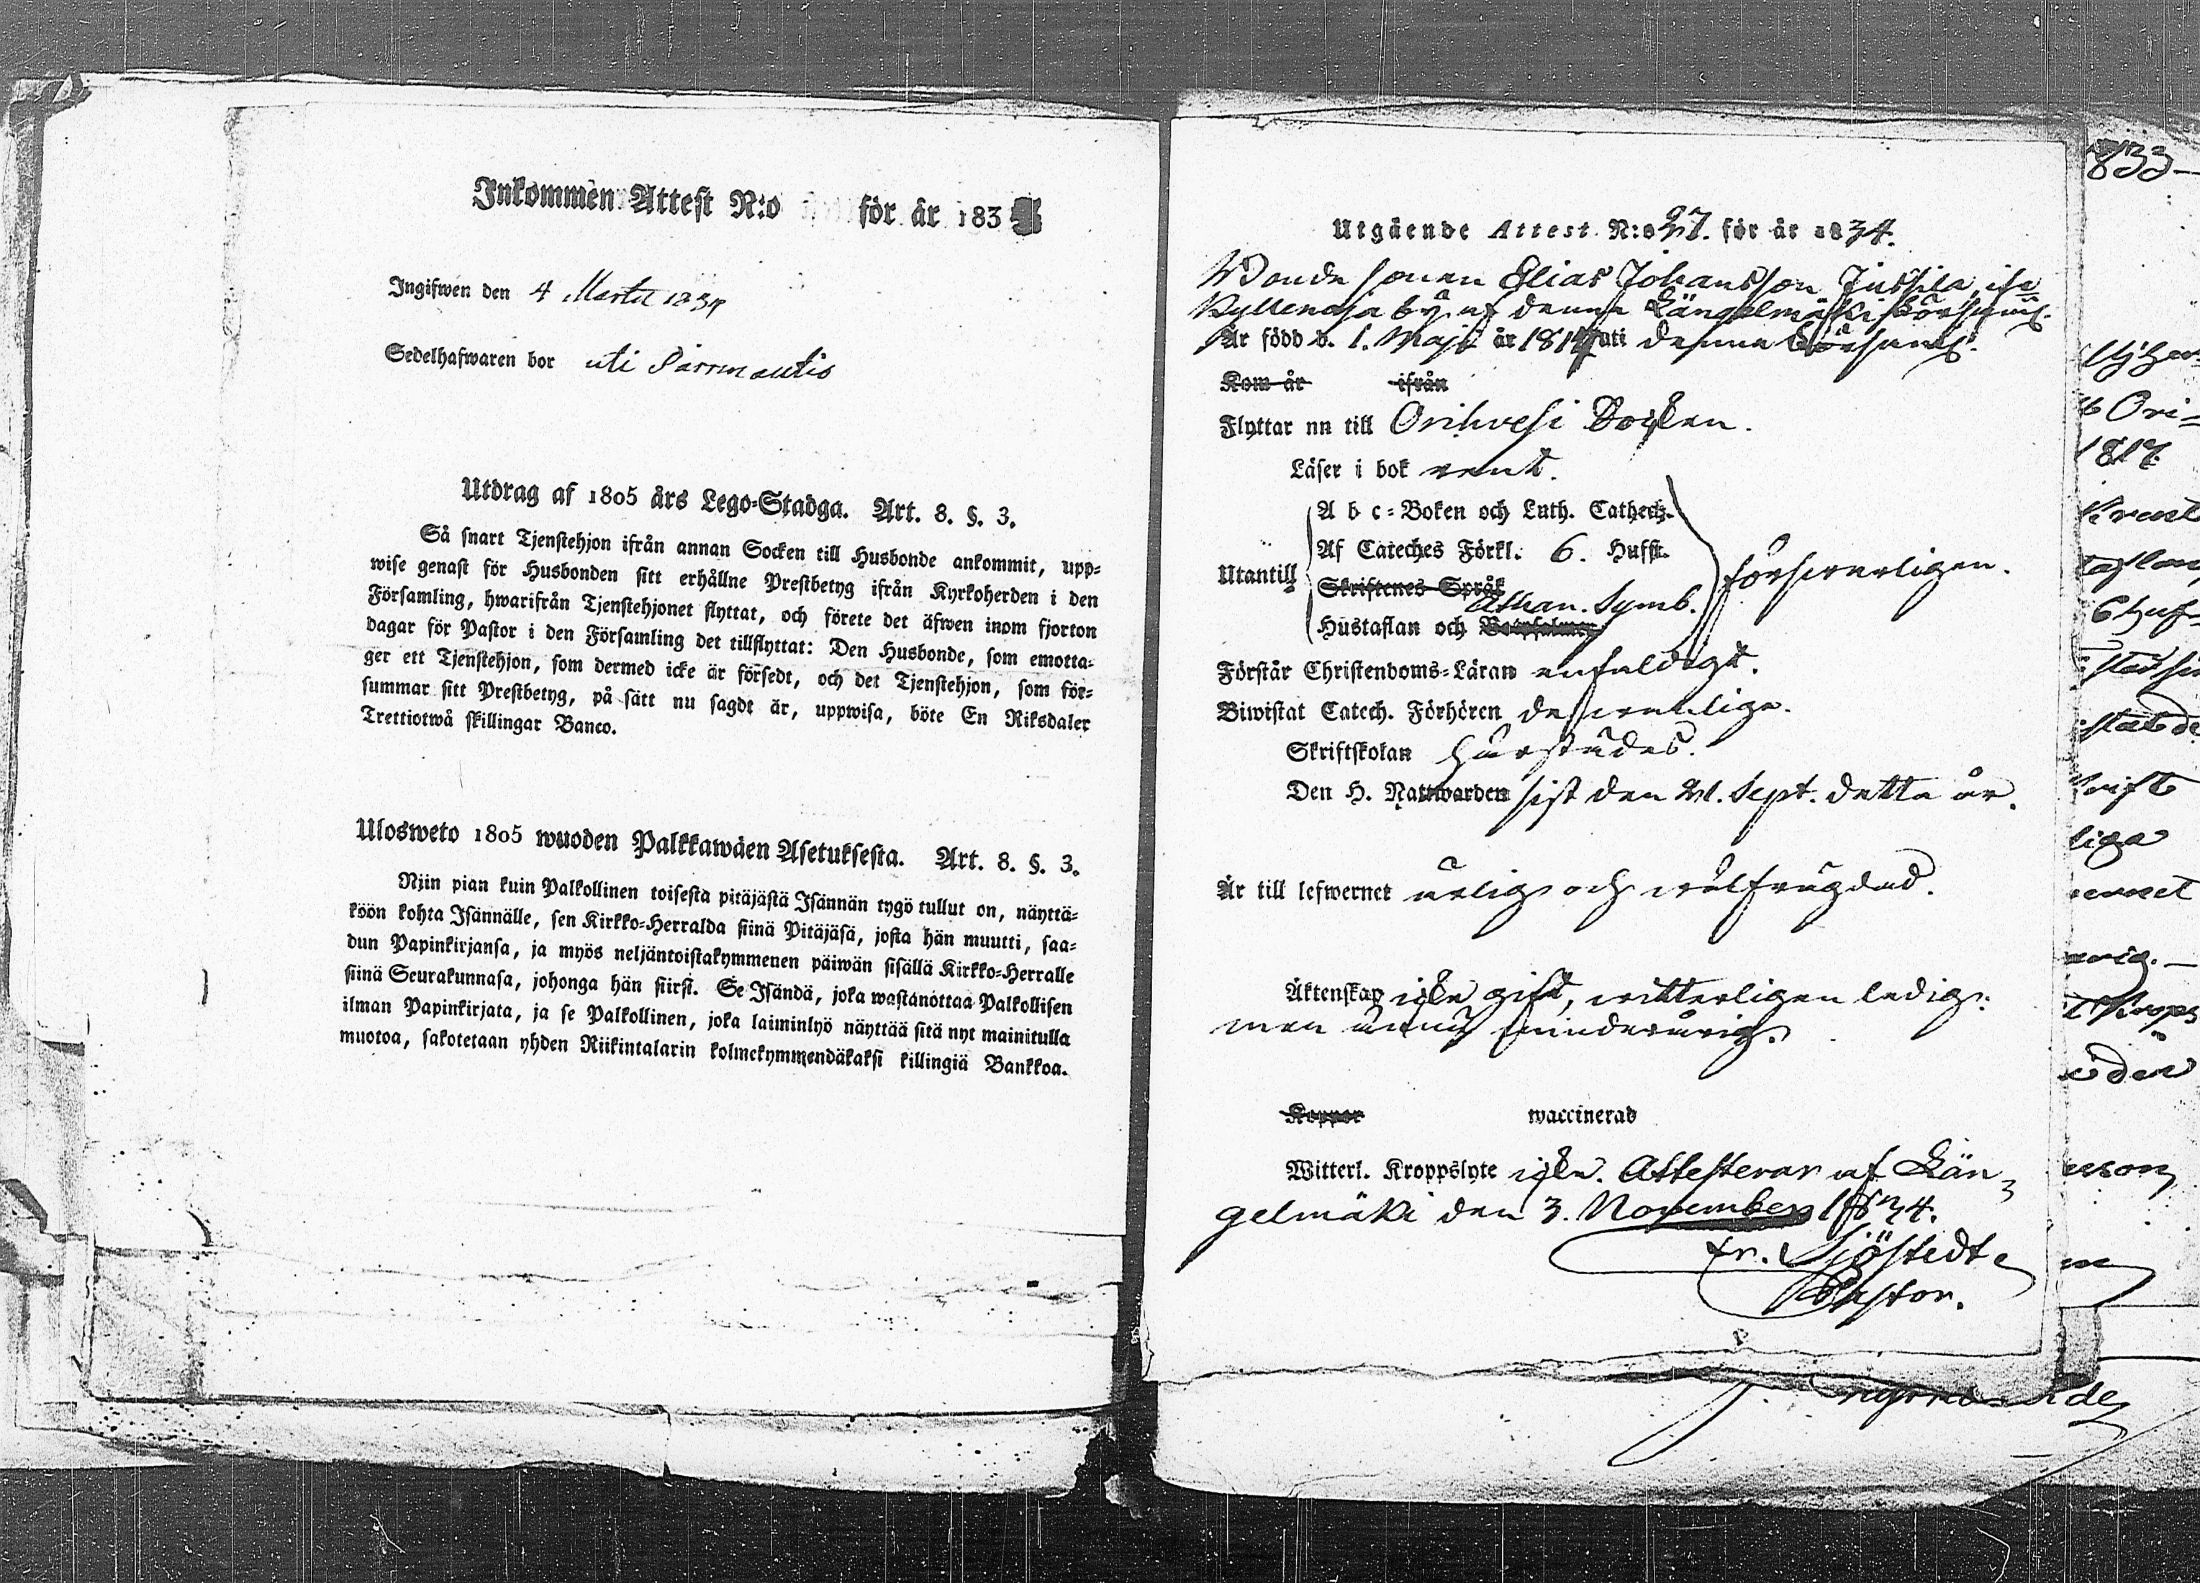 Inkommen Attest N:o för år 183
Ingifwen den 4 Martii 1834
Sedelhafwaren bor uti
Utdrag af 1805 års Lego-Stadga. Art. 8. §. 3.
Så snart Tjenstehjon ifrån annan Socken till Husbonde ankommit, upp-
wise genast för Husbonden sitt erhållne Prestbetyg ifrån Kyrkoherden i den
Församling, hwarifrån Tjenstehjonet flyttat, och förete det äfwen inom fjorton
dagar för Pastor i den Församling det tillflyttat: Den Husbonde, som emotta-
ger ett Tjenstehjon, som dermed icke är försedt, och det Tjenstehjon, som för-
summar sitt Prestbetyg, på sätt nu sagdt är, uppwisa, böte En Riksdaler
Trettiotwå skillingar Banco.
Ulosweto 1805 wuoden Palkkawäen Asetuksesta. Art. 8. §. 3.
Nijn pian kuin Palkollinen toisesta pitäjästä Isännän tygö tullut on, näyttä-
köön kohta Isännälle, sen Kirkko-Herralda siinä Pitäjäsä, josta hän muutti, saa-
dun Papinkirjansa, ja myös neljäntoistakymmenen päiwän sisällä Kirkko-Herralle
siinä Seurakunnasa, johonga hän siirst. Se Isändä, joka wastanottaa Palkollisen
ilman Papinkirjata, ja se Palkollinen, joka laiminlyö näyttää sitä nyt mainitulla
muotoa, sakotetaan yhden Riikintalarin kolmekymmendäkaksi killingiä Bankkoa.
Utgående Attest N:o 27. för år 1834.
Bonde sonen Elias Johansson Jussila, ifr.
by af denna Längelmäki församl.
Är född d. 1. Maji år 181 uti denna församl.
Kom år ifrån
Flyttar nu till Orihvesi Socken.
Läser i bok rent.
A b c-Boken och Luth. Cathech.
Af Cateches Förkl. 6. Hufst.
Utantill Skriftenes Språk försvarligen.
Athan. Symb.
Hustaflan och Botpsalmer
Förstår Christendoms-Läran enfaldigt.
Biwistat Catech. Förhören desserentlige.
Skriftskolan härstädes.
Den H. Nattwarden sist den 21. Sept. detta år.
Är till lefwernet ärlig och wälfrägdad.
Äktenskap icke gift, witterligen ledig.
men ännu minderårig.
Koppor waccinerad
Witterl. Kroppslyte icke. Attesterar af Län-
gelmäki den 3. November 1834.
Fr. Sjöstedt
Pastor.
1833
Ori-
1817.
6 Huf-